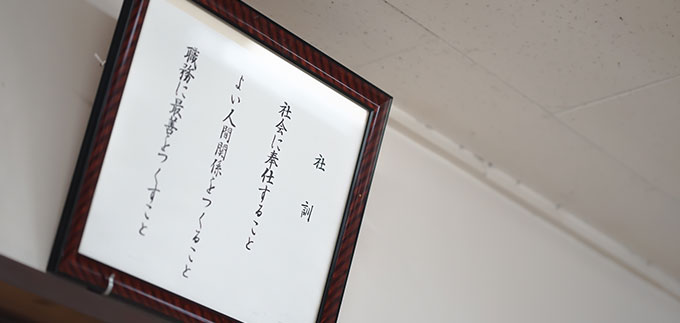 社訓
社会に奉仕すること
よい人間関係をつくること
職務に最善をつくすこと